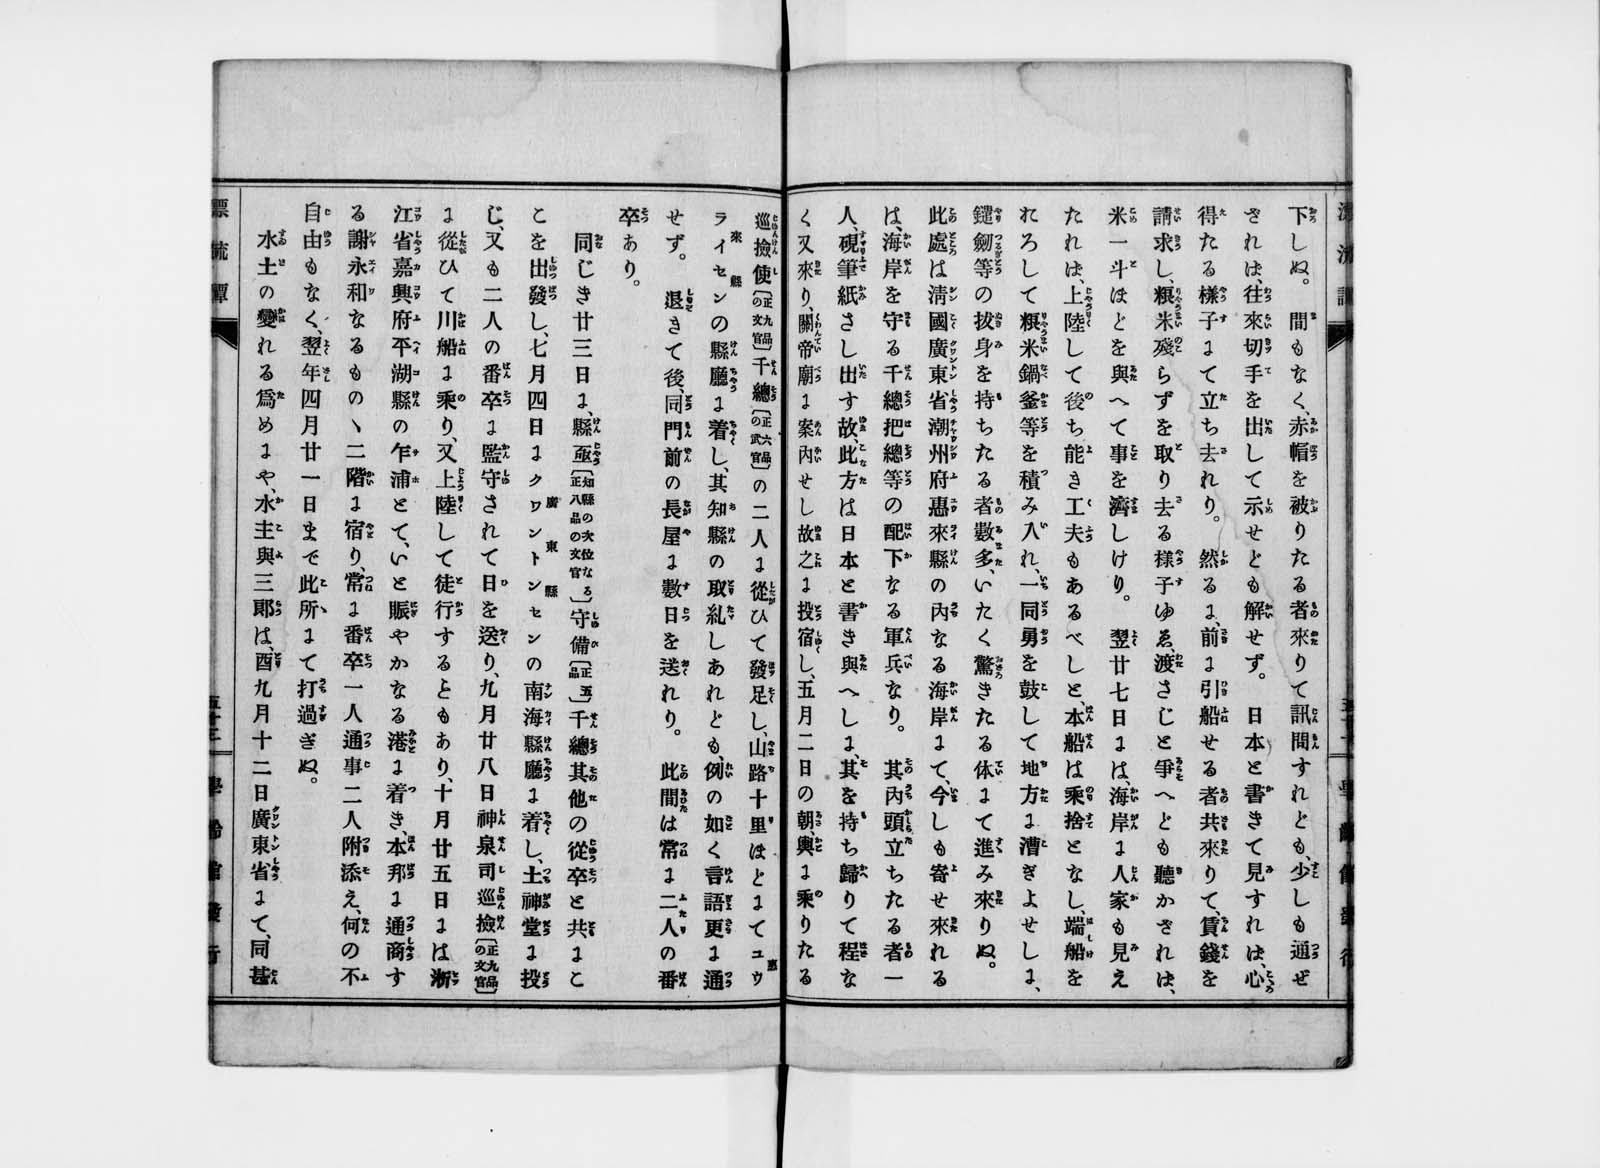 下しぬ。間もなく、赤帽を被りたる者來りて訊問すれども、少しも通ぜ
されは往來切手を出して示せども解せず。日本と書きて見すれは、心
得たる樣子にて立ち去れり。然るに、前に引船せる者共來りて、賃錢を
請求し、粮米殘らずを取り去る樣子ゆゑ、渡さじと爭へども聽かされは、
米一斗ほどを與へて事を濟しけり。翌廿七日には、海岸に人家も見え
たれは、上陸して後ち能き工夫もあるべしと、本船は乘捨となし、端船を
れろして粮米鍋釜等を積み入れ、一同勇を鼓して地方に漕ぎよせしに、
鑓劒等の拔身を持ちたる者數多、いたく驚きたる体にて進み來りぬ。
此處は淸國廣東省潮州府惠來縣の內なる海岸にて、今しも寄せ來れる
は、海岸を守る千總把總等の配下なる軍兵なり。其內頭立ちたる者一
人硯筆紙さし出す故、此方は日本と書き與へしに、其を持ち歸りて程な
く又來り、關帝廟に案內せし故之に投宿し、五月二日の朝、輿に乘りたる
巡檢使〔正九品の文官〕千總〔正六品の武官〕の二人に從ひて發足し、山路十里ほどにてユウ
ライセンの縣廳に着し、其知縣の取糺しあれども、例の如く言語更に通
せず。退きて後、同門前の長屋に數日を送れり。此間は常に二人の番
卒あり。
同じき廿三日に、縣丞〔知縣の次位なる正八品の文官〕守備〔正五品〕千總其他の從卒と共にこ
こを出發し、七月四日にクワントンセンの南海縣廳に着し、土神堂に投
じ、又も二人の番卒に監守されて日を送り、九月廿八日神泉司巡檢〔正九品の文官〕
に從ひて川船に乘り、又上陸して徒行するともあり、十月廿五日には浙
江省嘉興府平湖縣の乍浦とて、いと賑やかなる港に着き、本邦に通商す
る謝永和なるものヽ二階に宿り、常に番卒一人通事二人附添え、何の不
自由もなく、翌年四月廿一日まで此所にて打過ぎぬ。
水土の變れる爲めにや、水主與三郞は、酉九月十二日廣東省にて、同甚